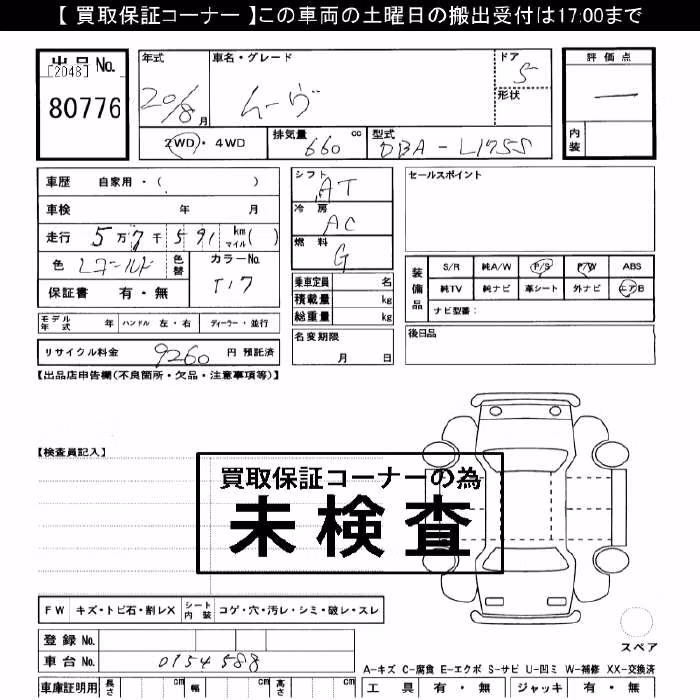 【 買取保証コーナー 】この車両の土曜日の搬出受付は17:00まで
出品 No.
[2048]
80776
年式 車名・グレード ドア
20/8 月 ムーヴ 5
形状
2WD・4WD 排気量 660 cc 型式 DBA-L175S
評価点
―
内装
車歴 自家用・( )
車検 年 月
走行 5万7千591 km マイル ( )
色 Lゴールド 色替 カラーNo. T17
保証書 有・無
シフト AT
冷房 AC
燃料 G
乗車定員 名
積載量 kg
総重量 kg
名変期限
月 日
セールスポイント
装備品 S/R 純A/W P/S P/W ABS
純TV 純ナビ 革シート 外ナビ エアB
ナビ型番:
後日品
モデル年式 年 ハンドル 左・右 ディーラー・並行
リサイクル料金 9260 円 預託済
【出品店申告欄(不良箇所・欠品・注意事項等)】
【検査員記入】
買取保証コーナーの為
未検査
FW キズ・トビ石・割レX シート内装 コゲ・穴・汚レ・シミ・破レ・スレ
登録 No.
車台 No. 0154588
車庫証明用 長さ cm 幅 cm 高さ cm
スペア
A-キズ C-腐食 E-エクボ S-サビ U-凹ミ W-補修 XX-交換済
工具 有・無 ジャッキ 有・無